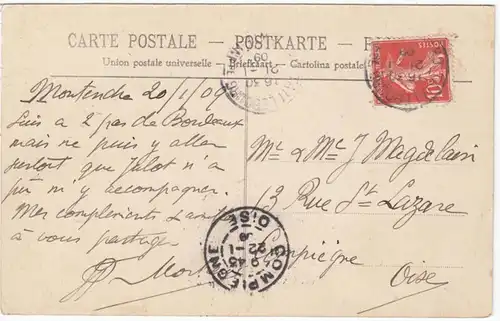 CARTE POSTALE — POSTKARTE — P
Union postale universelle – Briefkaart – Cartolina postale
Montendre 20/1/09
Suis a 2 pas de Bordeaux
mais ne puis y aller
surtout que n'a
pu m'y accompagner.
Mes compliments &
à vous partager
Mr & Me J Magdelain
13 Rue St Lazare
Compiègne
Oise
COMPIEGNE
OISE
9 45
22 - 1
09
16 30
21 - 1
09
POSTES
10